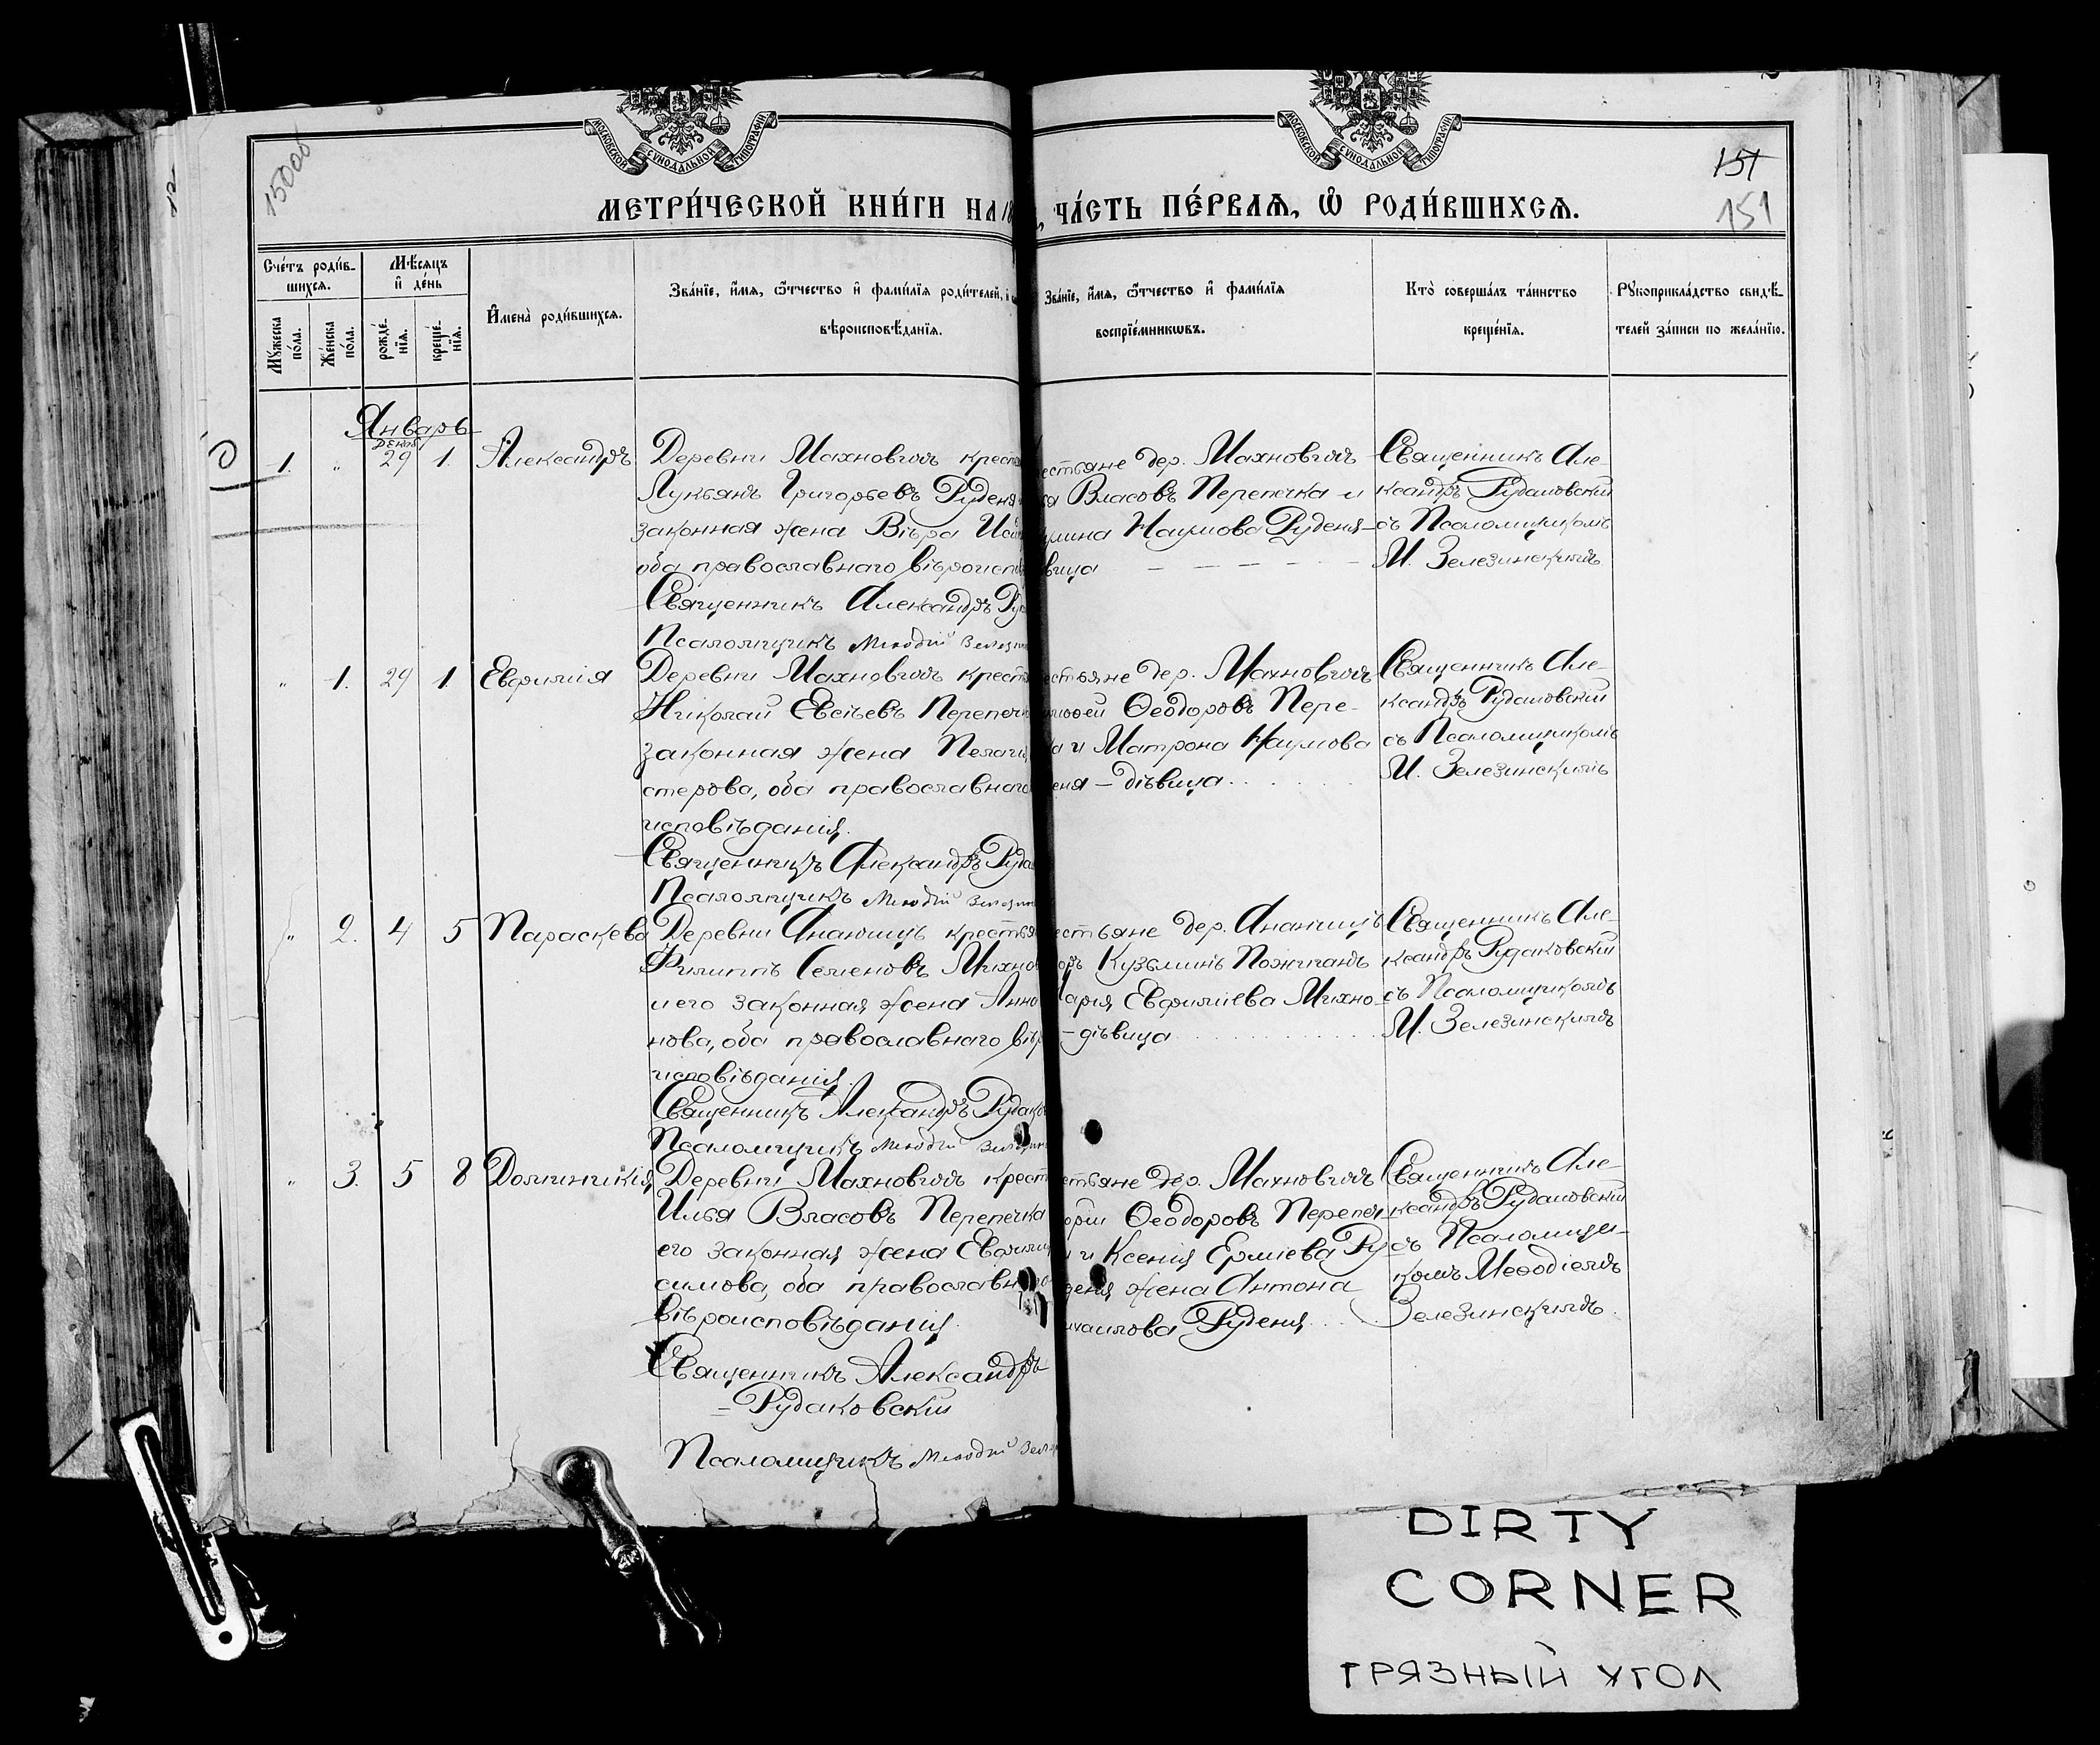 МОСКОВСКОЙ СУНОДАЛЬНОЙ ТИПОГРАФІИ
МОСКОВСКОЙ СУНОДАЛЬНОЙ ТИПОГРАФІИ
151
151
МЕТРИ́ЧЕСКОЙ КНИ́ГИ НА 18
ЧА́СТЬ ПЕ́РВАѦ, Ѡ РОДИ́ВШИХСѦ.
Сче́тъ роди́в-
шихсѧ.
Мѣ́сѧцъ
и҆ де́нь
Му́жеска по́ла.
Же́нска по́ла.
рожде́-
нїѧ.
креще́-
нїѧ.
И҆мена̀ роди́вшихсѧ.
Зва́нїе, и҆́мѧ, ѻ҆́тчество и҆ фами́лїѧ роди́телей, и҆
вѣроисповѣ́данїѧ.
Зва́нїе, и҆́мѧ, ѻ҆́тчество и҆ фами́лїѧ
воспрїе́мникѡвъ.
Кто̀ соверша́лъ та́инство
креще́нїѧ.
Рꙋкоприкла́дство свидѣ́-
телей за́писи по жела́нїю.
Январь
Декаб.
1. " 29 1. Александръ
Деревни Махновичъ крест
Лукьянъ Григорьевъ Руденя
законная жена Вѣра
оба православнаго вѣроиспо
Священникъ Александръ Ру
Псаломщикъ Меѳодій Зелезин
естьяне дер. Махновичъ
Власовъ Перепечка и
Наумова Руденя-
вица
Священникъ Але-
ксандръ Рудаковскій
съ Псаломщикомъ
М. Зелезинскимъ
" 1. 29 1. Евфимія
Деревни Махновичъ крест
Николай Евсѣевъ Перепечк
законная жена Пелагі
стерова, оба православнаго
исповѣданія.
Священникъ Александръ Руда
Псаломщикъ Меѳодій Зелезин
естьяне дер. Махновичъ
Ѳеодоровъ Пере-
ка и Матрона Наумова
еня - дѣвица
Священникъ Але-
ксандръ Рудаковскій
съ Псаломщикомъ
М. Зелезинскимъ
" 2. 4 5 Параскева
Деревни Ананчицъ крестья
Филиппъ Семеновъ Михно
и его законная жена Анна
нова, оба православнаго вѣр
исповѣданія.
Священникъ Александръ Рудако
Псаломщикъ Меѳодій Зелезин
естьяне дер. Ананчицъ
Кузьминъ Пожиганъ
арія Евфиміева Михно-
- дѣвица
Священникъ Але-
ксандръ Рудаковскій
съ Псаломщикомъ
М. Зелезинскимъ
" 3. 5 8 Домникія
Деревни Махновичъ крест
Илья Власовъ Перепечка
его законная жена Евфимі
симова, оба православн
вѣроисповѣданія.
Священникъ Александръ
Рудаковскій
Псаломщикъ Меѳодій Зелез
стьяне дер. Махновичъ
орій Ѳеодоровъ Перепеч-
и Ксенія Ермиева Ру-
деня жена Антона
ихаилова Руденя
Священникъ Але-
ксандръ Рудаковскій
съ Псаломщи-
комъ Меѳодіемъ
Зелезинскимъ.
DIRTY
CORNER
ГРЯЗНЫЙ УГОЛ